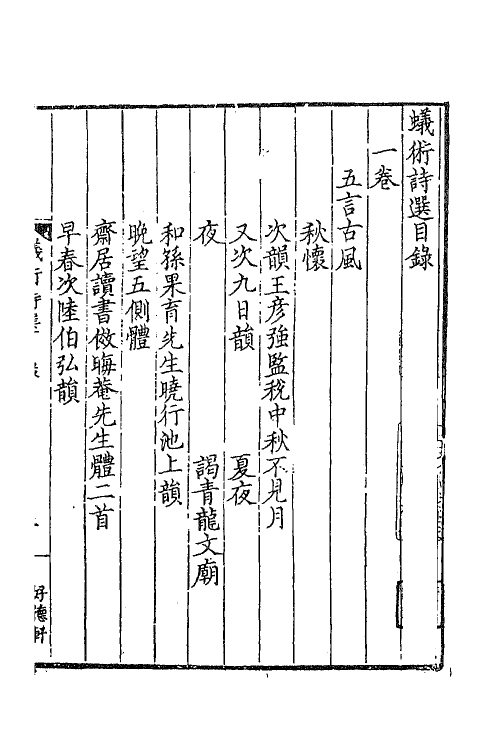 蟻術詩選目錄
一卷
五言古風
秋懷
次韻王彦強監稅中秋不見月
又次九日韻　夏夜
夜　謁青龍文廟
和孫果育先生曉行池上韻
晚望五側體
齋居讀書倣晦菴先生體二首
早春次陸伯弘韻
好德軒